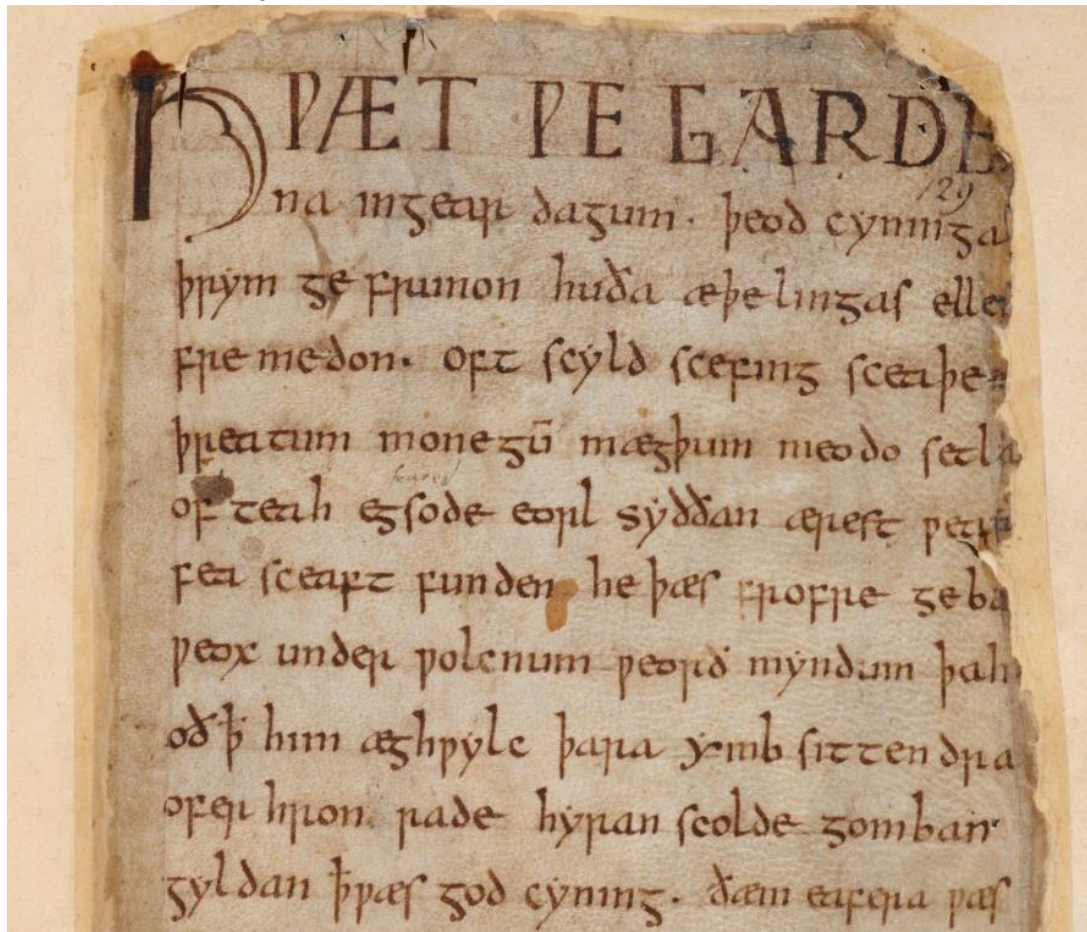 HǷÆT ǷE GARDE
129
na ingear dagum. þeod cyninga
þrym ge frunon huða æþelingas ellen
fre medon. oft scyld scefing sceaþe
þreatum monegū mægþum meodo setla
of teah egsode eorl syððan ærest ƿear
fea sceaft funden he þæs frofre geba
ƿeox under ƿolcnum ƿeorð myndum þah
oð ꝥ him æghƿylc þara ymb sitten dra
ofer hron rade hyran scolde gomban
gyldan ꝥ ƿæs god cyning. ðæm eafera ƿæs